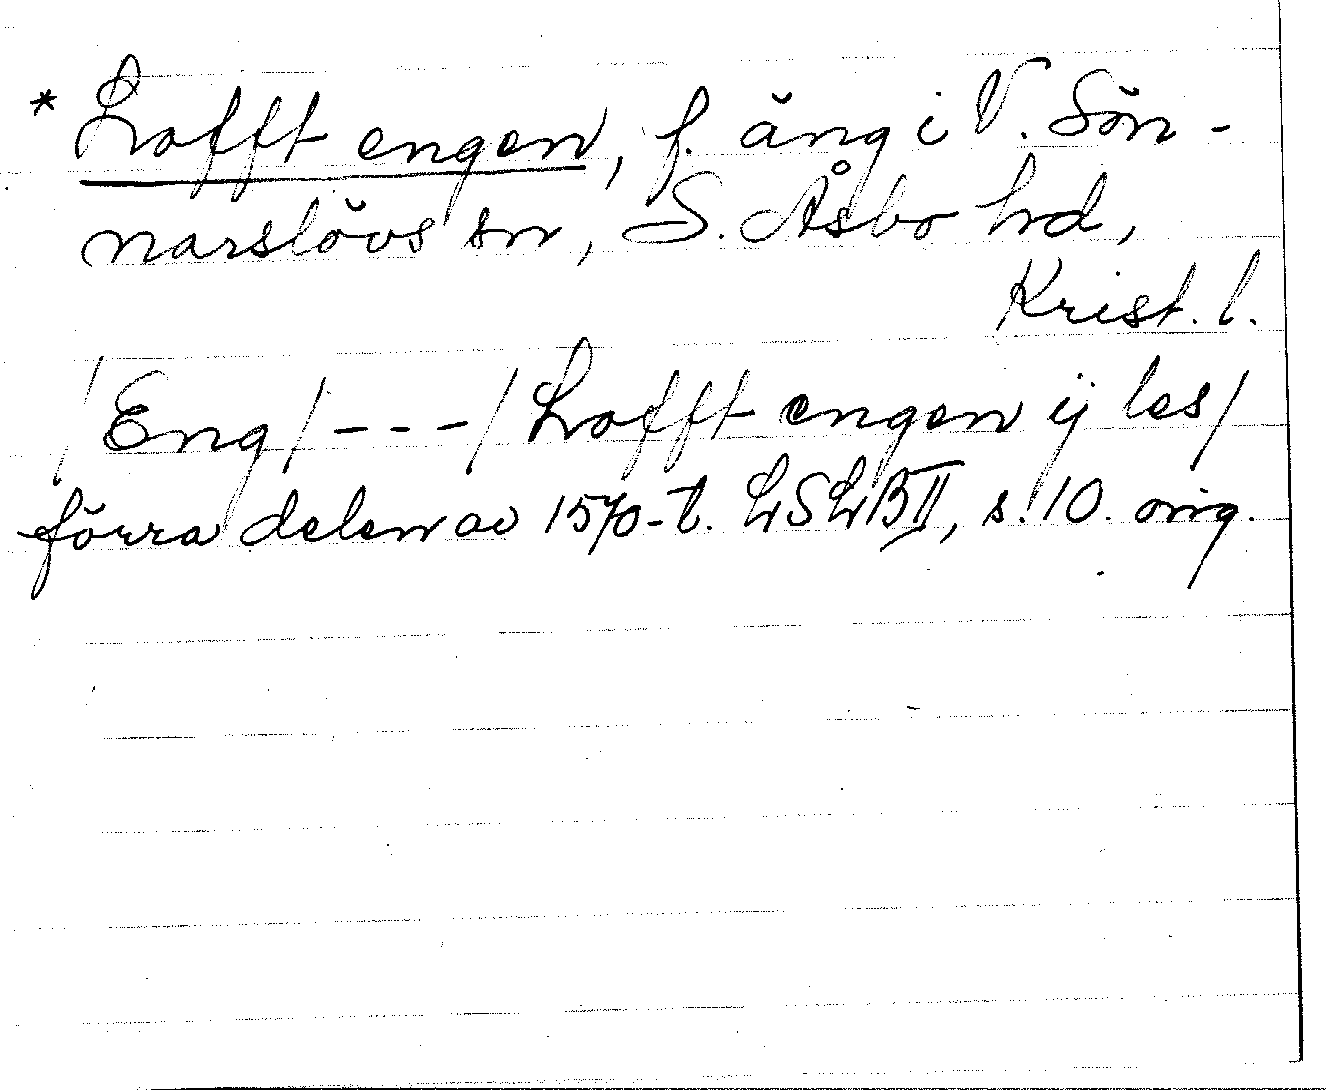 * Lofft engen, f. äng i V. Sön-
narslövs sn, S. Åsbo hd,
Krist. l.
/Eng/---/Lofft engen ij les/
förra delen av 1570-t. LSLB II, s. 10. orig.